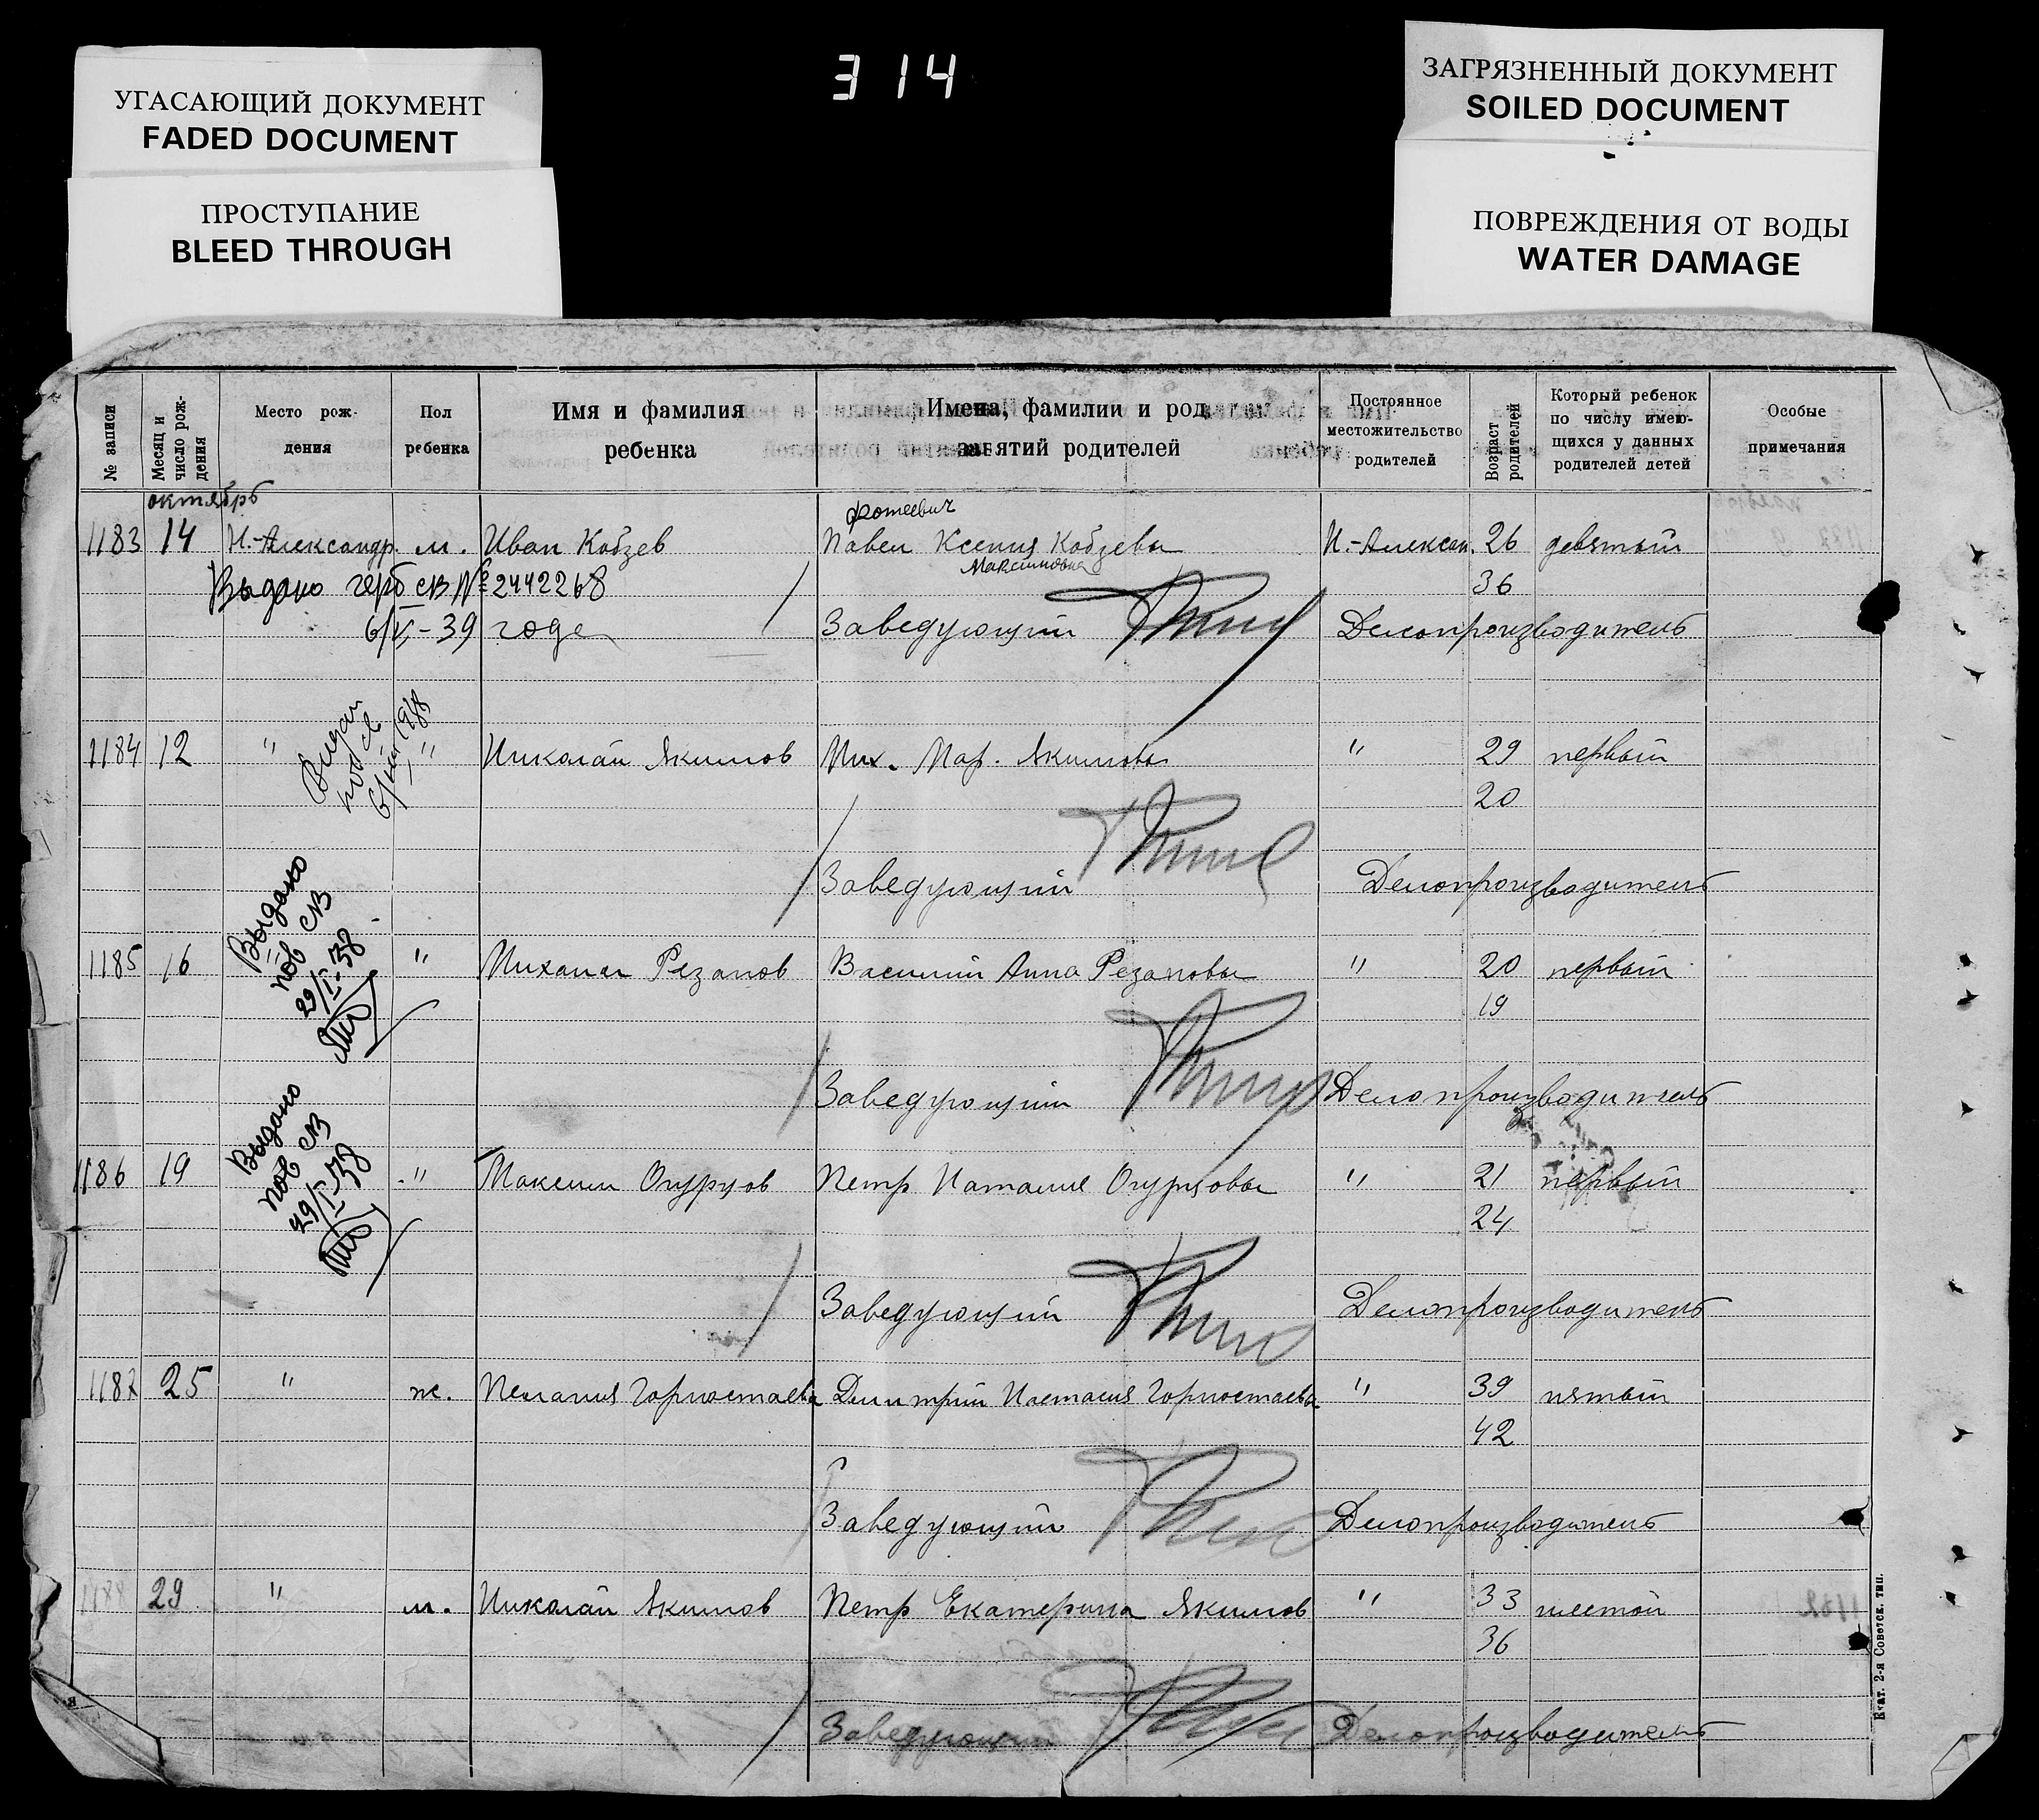 314
УГАСАЮЩИЙ ДОКУМЕНТ
FADED DOCUMENT
ПРОСТУПАНИЕ
BLEED THROUGH
ЗАГРЯЗНЕННЫЙ ДОКУМЕНТ
SOILED DOCUMENT
ПОВРЕЖДЕНИЯ ОТ ВОДЫ
WATER DAMAGE
№ записи
Месяц и число рождения
Место рож-
дения
Пол
ребенка
Имя и фамилия
ребенка
Имена, фамилии и род
занятий родителей
Постоянное
местожительство
родителей
Возраст
родителей
Который ребенок
по числу имею-
щихся у данных
родителей детей
Особые
примечания
октябрь
фотеевич
1183 14 Н.-Александр. м. Иван Кобзев Павел Ксения Кобзевы Н.-Алексан. 26 девятый
Максимовна
Выдано герб св № 2442268 36
6/V-39 года Заведующий Делопроизводитель
Выдан
пов св
1184 12 " " Николай Якимов Мих. Мар. Якимовы " 29 первый
20
Заведующий Делопроизводитель
Выдано
пов СВ
29/I-38
1185 16 " " Михаил Резанов Василий Анна Резановы " 20 первый
19
Заведующий Делопроизводитель
Выдано
пов СВ
29/I-38
1186 19 " Максим Огурцов Петр Наталия Огурцовы " 21 первый
24
Заведующий Делопроизводитель
1187 25 " ж. Пелагия Горностаева Димитрий Настасия Горностаевы " 39 пятый
42
Заведующий Делопроизводитель
1188 29 " м. Николай Якимов Петр Екатерина Якимов " 33 шестой
36
Заведующий Делопроизводитель
Екат. 2-я Советск. тип.